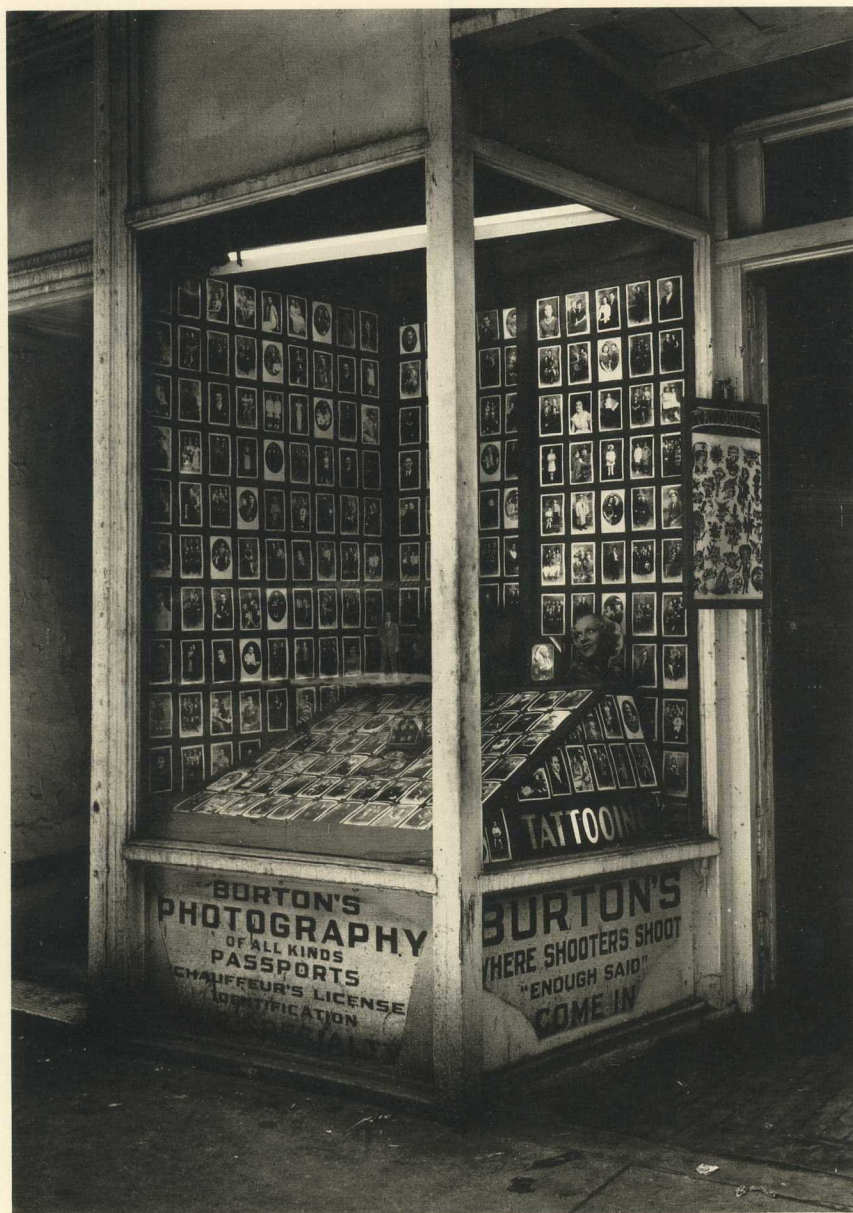 TATTOOIN
BURTON'S
PHOTOGRAPHY
OF ALL KINDS
PASSPORTS
CHAUFFEUR'S LICENSE
IDENTIFICATION
SPECIALTY
BURTON'S
WHERE SHOOTERS SHOOT
"ENOUGH SAID"
COME IN